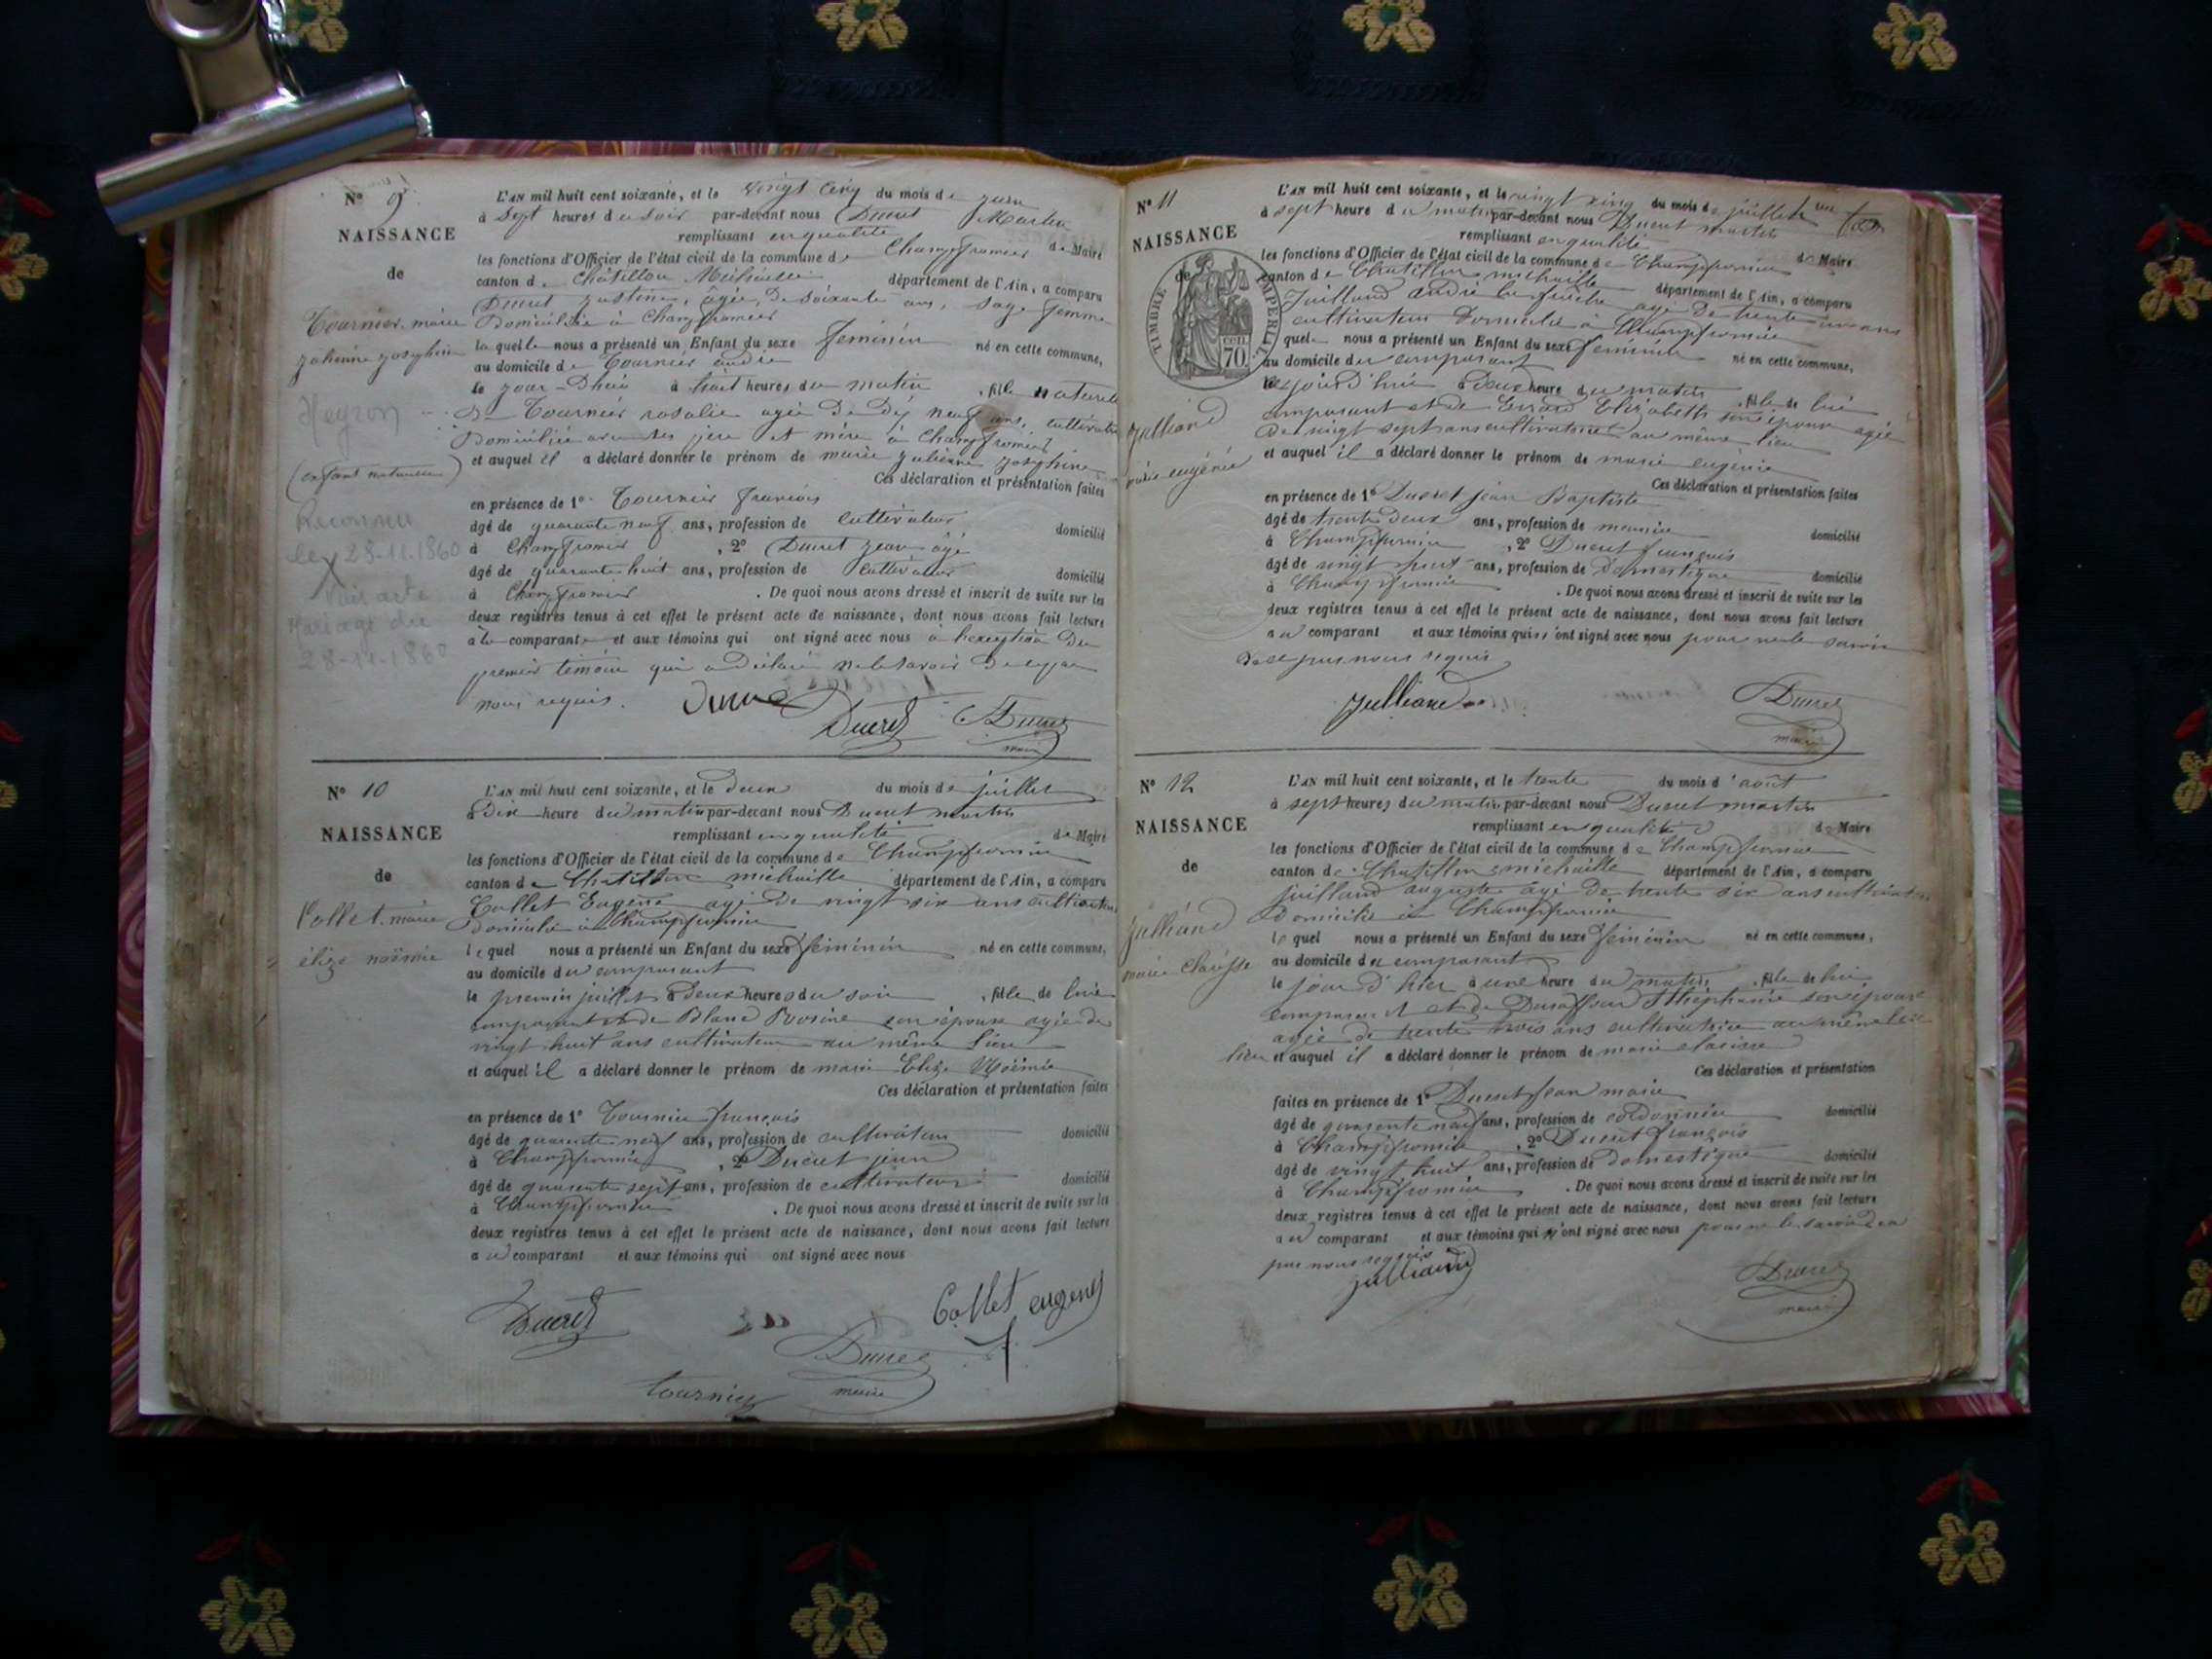 N° 9
NAISSANCE
de
Tournier marie
julienne josephine
Heyron
(enfant naturelle)
Reconnu
le 28-11-1860
Voir acte
Mariage du
28-11-1860
L'AN mil huit cent soixante, et le vingt cinq du mois de juin
à Sept heures du soir par-devant nous Ducret Martin
remplissant en qualité de Maire
les fonctions d'Officier de l'état civil de la commune de Champfromier
canton de Châtillon Michaille département de l'Ain, a comparu
Ducret justine, agée de soixante ans, sage femme
Domiciliée à Champfromier
laquelle nous a présenté un Enfant du sexe feminin né en cette commune,
au domicile de Tournier andré
le jour-Dhui à huit heures du matin, fille naturelle
De Tournier rosalie agée de Dix neuf ans, cultivatrice
Domiciliée avec ses père et mère à Champfromier
et auquel il a déclaré donner le prénom de marie julienne josephine
Ces déclaration et présentation faites
en présence de 1° Tournier francois
âgé de quarante neuf ans, profession de cultivateur domicilié
à Champfromier, 2° Ducret jean âgé
âgé de quarante huit ans, profession de cultivateur domicilié
à Champfromier. De quoi nous avons dressé et inscrit de suite sur les
deux registres tenus à cet effet le présent acte de naissance, dont nous avons fait lecture
à la comparante et aux témoins qui ont signé avec nous à l'exception du
premier temoin qui a Déclaré ne le savoir De ce par
nous requis.
Ducret Ducret
maire
N° 10
NAISSANCE
de
Collet marie
élize noémie
L'AN mil huit cent soixante, et le deux du mois de juillet
à Dix heure du matin par-devant nous Ducret martin
remplissant en qualité de Maire
les fonctions d'Officier de l'état civil de la commune de Champfromier
canton de Chatillon michaille département de l'Ain, a comparu
Collet Eugène agé De vingt six ans cultivateur
Domicilié à Champfromier
lequel nous a présenté un Enfant du sexe féminin né en cette commune,
au domicile du comparant
le premier juillet à Deux heures du soir, fille de lui
comparant et de Blanc son épouse agée de
vingt huit ans cultivateur au même lieu
et auquel il a déclaré donner le prénom de marie Elize Noémie
Ces déclaration et présentation faites
en présence de 1° Tournier françois
âgé de quarante neuf ans, profession de cultivateur domicilié
à Champfromier, 2° Ducret jean
âgé de quarante sept ans, profession de cultivateur domicilié
à Champfromier. De quoi nous avons dressé et inscrit de suite sur les
deux registres tenus à cet effet le présent acte de naissance, dont nous avons fait lecture
au comparant et aux témoins qui ont signé avec nous
Ducret Collet eugene
Ducret
tournier maire
N° 11
NAISSANCE
de
TIMBRE IMPERIAL
CEN.
70
julliand
marie eugénie
L'AN mil huit cent soixante, et le vingt cinq du mois de juillet
à sept heure du matin par-devant nous Ducret martin
remplissant en qualité de Maire
les fonctions d'Officier de l'état civil de la commune de Champfromier
canton de Chatillon michaille département de l'Ain, a comparu
Juilland andré agé De trente ans
cultivateur Domicilié à Champfromier
quel nous a présenté un Enfant du sexe féminin né en cette commune,
au domicile du comparant
le jour D'hui à Deux heure du matin, fille de lui
comparant et de Elizabeth son épouse agée
De vingt sept ans cultivatrice au même lieu
et auquel il a déclaré donner le prénom de marie eugénie
Ces déclaration et présentation faites
en présence de 1° Ducret jean Baptiste
âgé de trente Deux ans, profession de meunier domicilié
à Champfromier, 2° Ducret françois
âgé de vingt huit ans, profession de Domestique domicilié
à Champfromier. De quoi nous avons dressé et inscrit de suite sur les
deux registres tenus à cet effet le présent acte de naissance, dont nous avons fait lecture
au comparant et aux témoins qui n'ont signé avec nous pour ne le savoir
De ce par nous requis
julliand Ducret
maire
N° 12
NAISSANCE
de
julliand
marie clarisse
L'AN mil huit cent soixante, et le trente du mois d'août
à sept heures du matin par-devant nous Ducret martin
remplissant en qualité de Maire
les fonctions d'Officier de l'état civil de la commune de Champfromier
canton de Chatillon michaille département de l'Ain, a comparu
juilland auguste âgé de trente six ans cultivateur
Domicilié à Champfromier
lequel nous a présenté un Enfant du sexe féminin né en cette commune,
au domicile du comparant
le jour D'hier à une heure du matin, fille de lui
comparant et de Sthéphanie son épouse
agée de trente trois ans cultivatrice au même lieu
lieu et auquel il a déclaré donner le prénom de marie clarisse
Ces déclaration et présentation
faites en présence de 1° Ducret Jean marie
âgé de quarante neuf ans, profession de cordonnier domicilié
à Champfromier, 2° Ducret françois
âgé de vingt huit ans, profession de Domestique domicilié
à Champfromier. De quoi nous avons dressé et inscrit de suite sur les
deux registres tenus à cet effet le présent acte de naissance, dont nous avons fait lecture
au comparant et aux témoins qui n'ont signé avec nous pour ne le savoir De ce
par nous requis
julliand Ducret
maire